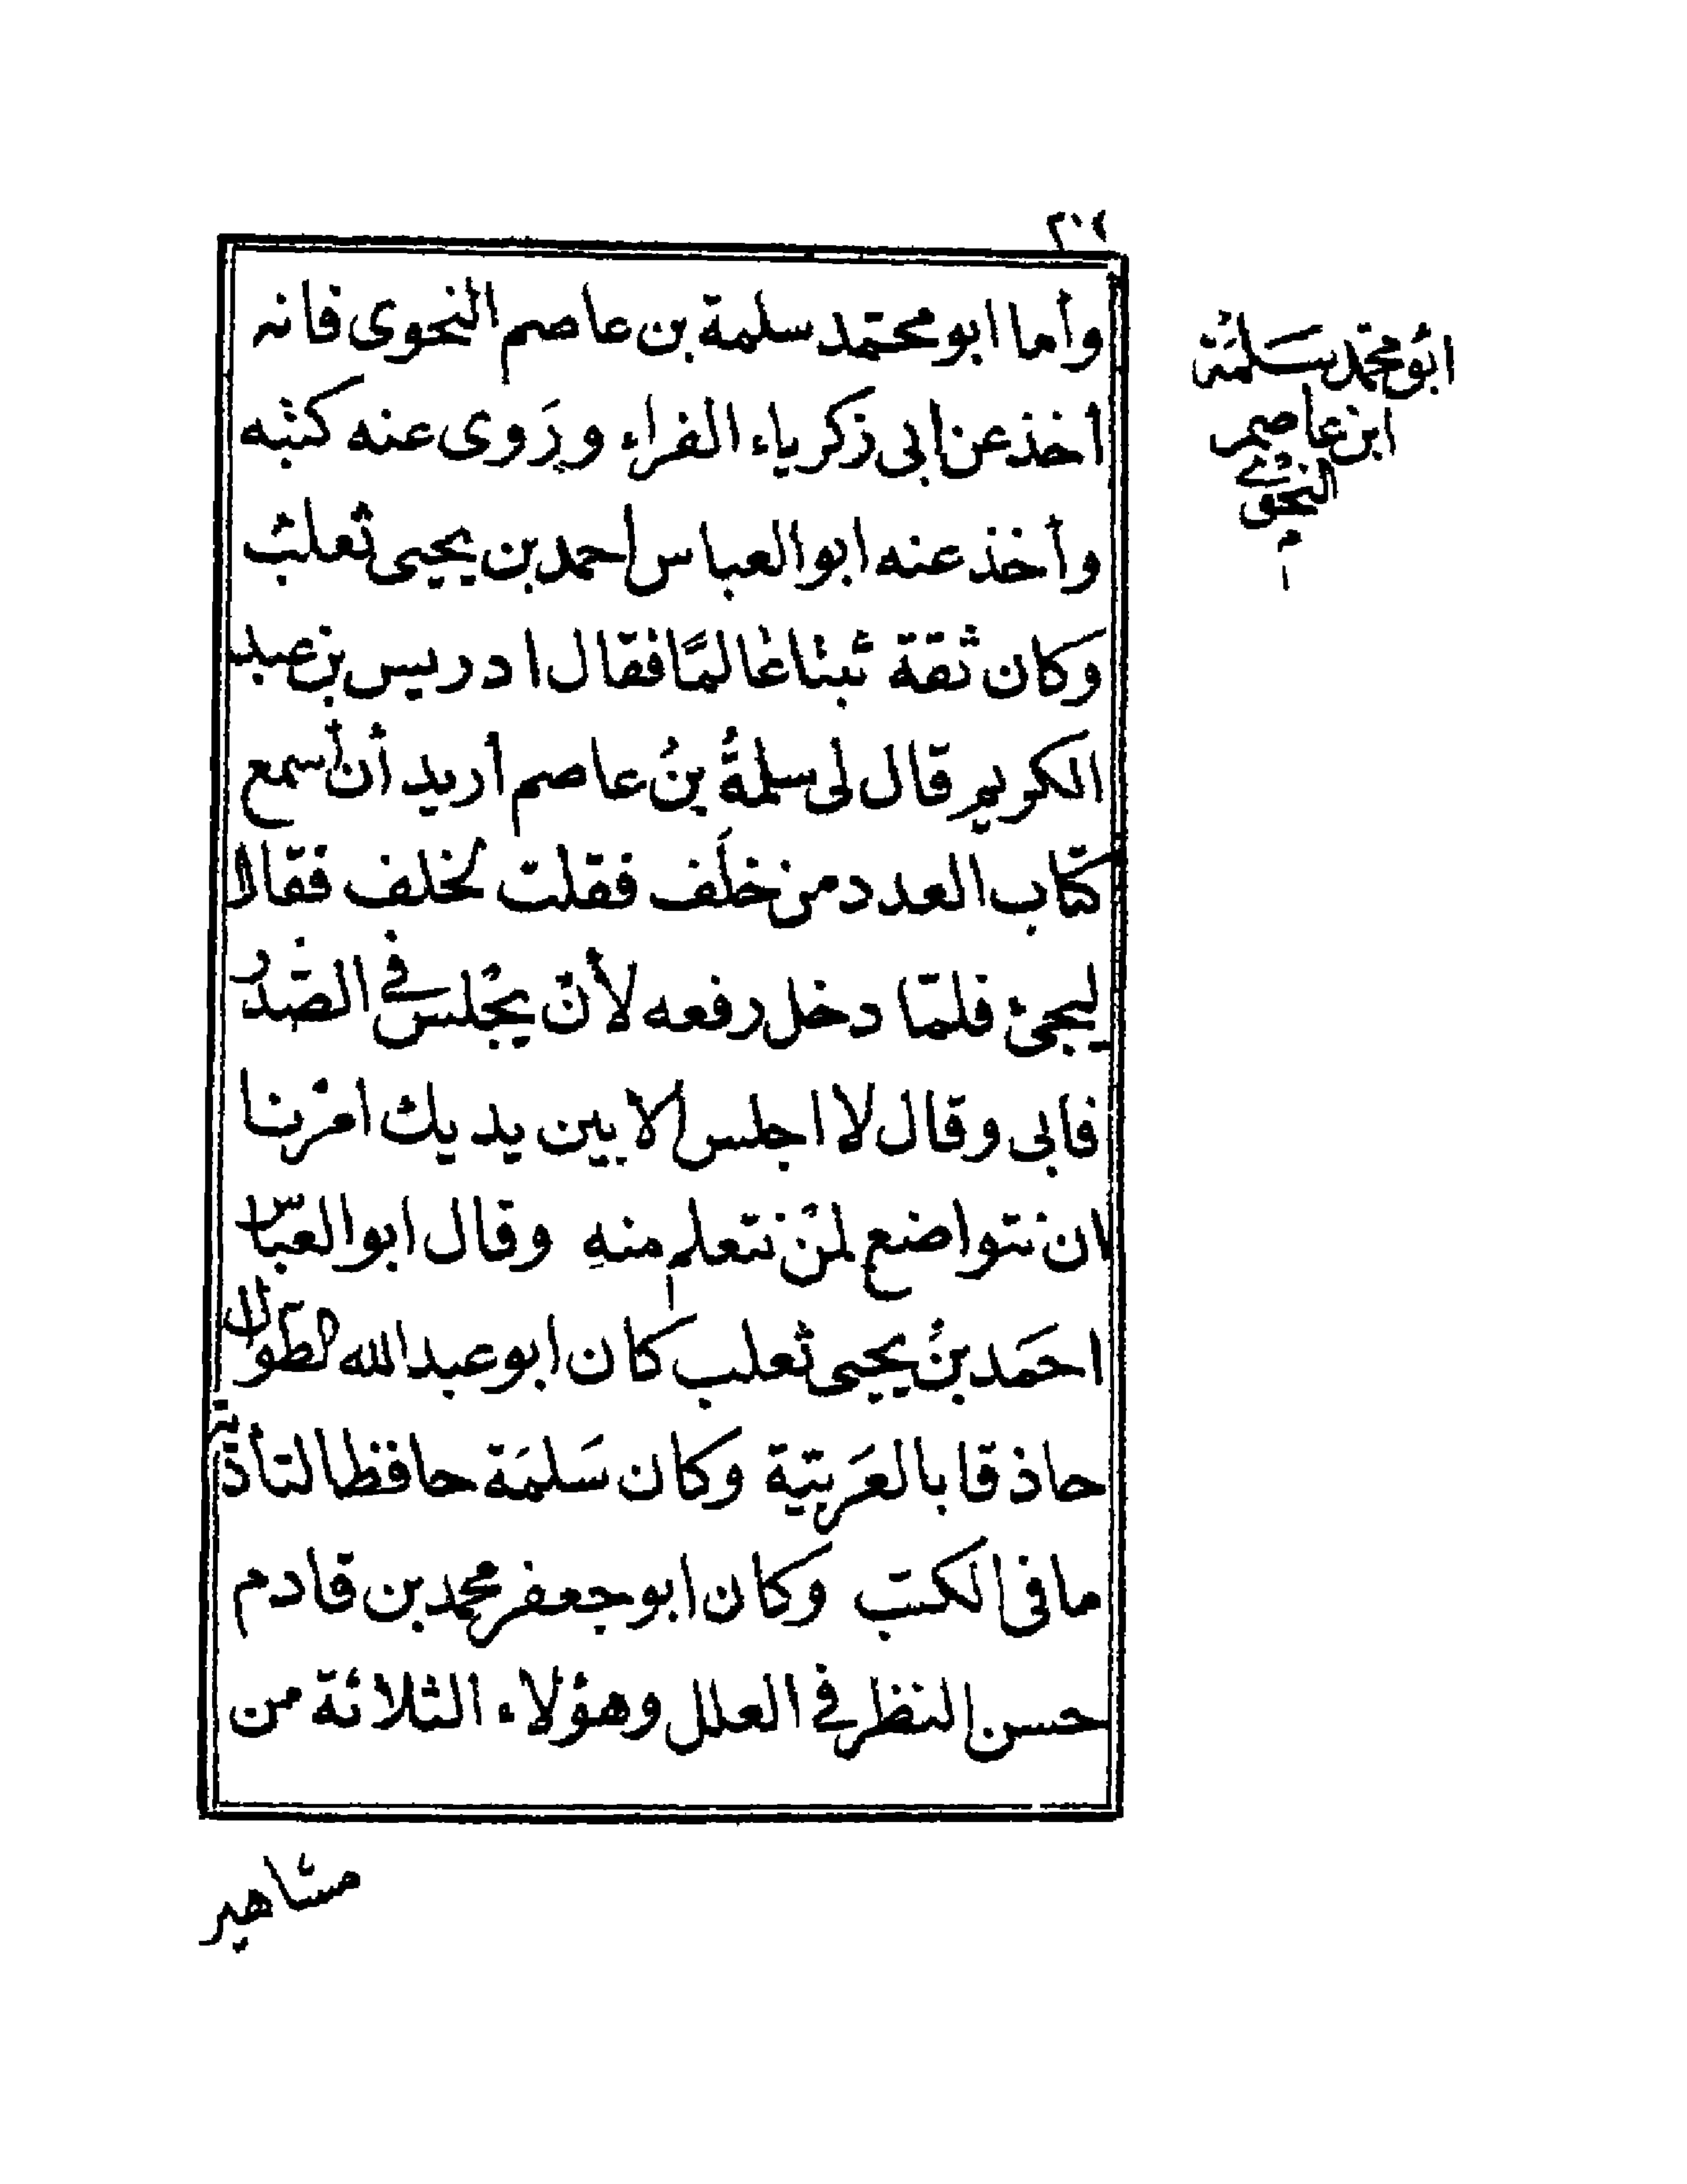 ٢٠٤
ابو محمد سلمة
ابن عاصم
النحوي
م
وأما ابو محمد سلمة بن عاصم النحوى فانه
أخذ عن ابى زكرياء الفراء ورَوى عنه كتبه
وأخذ عنه ابو العباس احمد بن يحيى ثعلب
وَكان ثقة ثبتا عالمًا فقال ادريس بن عبد
الكريم قال لى سلمةُ بنُ عاصم أريد أن أسمع
كتاب العدد من خلَف فقلت لخلف فقال
ليجئ فلمّا دخل رفعه لأنْ يجْلس فى الصَّدْر
فابى وقال لا اجلس الا بين يديك امرْنا
ان نتواضع لمنْ نتعلم منهِ وقال ابو العبّاس
احمَد بنُ يحيى ثعلب كان ابو عبد الله الطوَال
حاذقا بالعَربيّة وكان سَلمَة حافظا لتأدية
ما فى الكتب وكان ابو جعفر محمد بن قادم
حسن النظر فى العلل وهؤلاء الثلاثة من
مشاهير